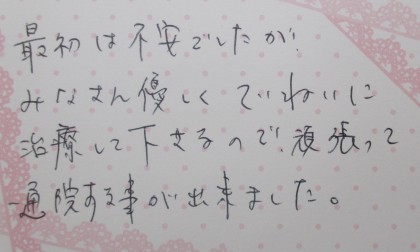 最初は不安でしたが
みなさん優しくていねいに
治療して下さるので頑張って
通院する事が出来ました。